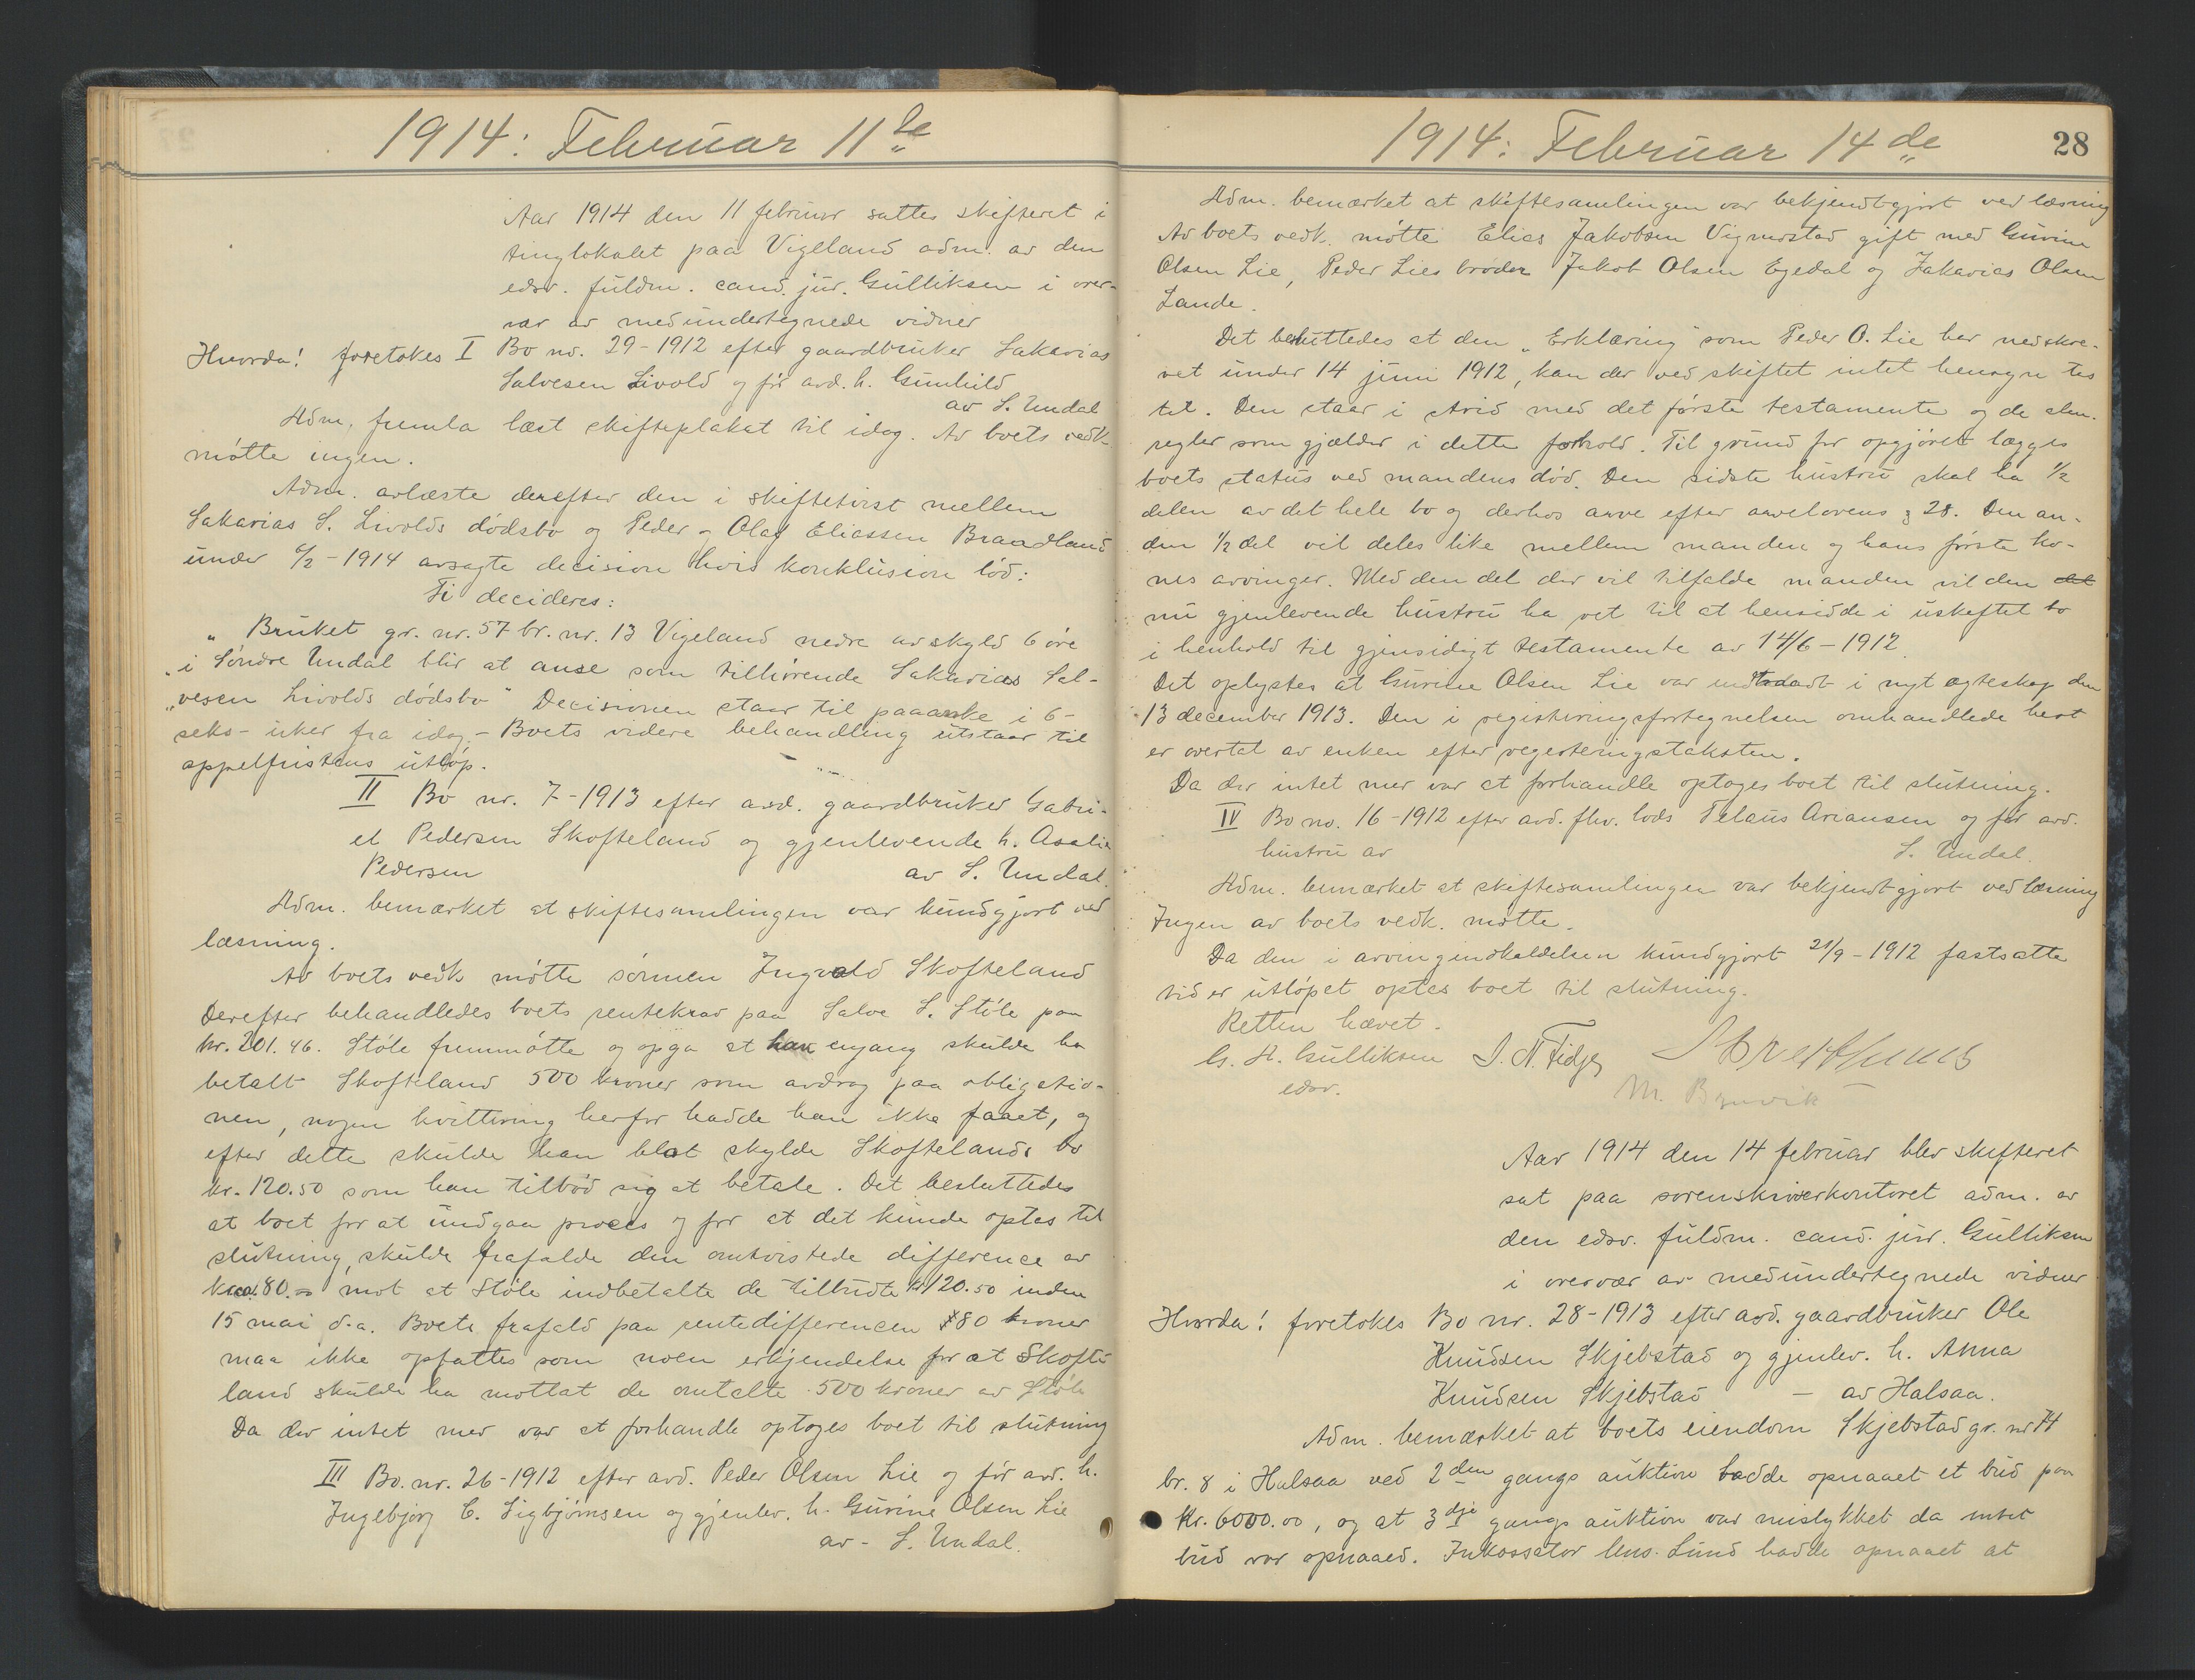 1914: Februar 11te
Aar 1914 den 11 februar sattes skifteret i
tinglokalet paa Vigeland adm. av den
edsv. fuldm. cand. jur. Gulliksen i over-
vær av medundertegnede vidner
Hvorda! foretokes I Bo nr. 29-1912 efter gaardbruker Sakarias
Salvesen Livold og før avd. h. Gunhild
av S. Undal
Adm. fremla læst skifteplakat til idag. Av boets vedk.
møtte ingen.
Adm. avlæste derefter den i skiftetvist mellem
Sakarias S. Livolds dødsbo og Peder og Olaf Eliassen Braadland
under 6/2-1914 avsagte decision hvis konklusion lød:
Ti decideres:
" Bruket gr. nr. 57 br. nr. 13 Vigeland nedre av skyld 6 øre
" i Søndre Undal blir at anse som tilhørende Sakarias Sal-
" vesen Livolds dødsbo" Decisionen staar til paaanke i 6-
seks- uker fra idag. - Boets videre behandling utstaar til
appelfristens utløp.
II Bo nr. 7-1913 efter avd. gaardbruker Gabri-
el Pedersen Skofteland og gjenlevende h. Asalie
Pedersen av S. Undal.
Adm. bemærket at skiftesamlingen var kundgjort ved
læsning.
Av boets vedk møtte sønnen Ingvald Skofteland
Derefter behandledes boets rentekrav paa Salve S. Støle paa
kr. 201.46. Støle fremmøtte og opga at han engang skulde ha
betalt Skofteland 500 kroner som avdrag paa obligatio-
nen, nogen kvittering herfor hadde han ikke faaet, og
efter dette skulde han blot skylde Skoftelands bo
kr. 120.50 som han tilbød sig at betale. Det besluttedes
at boet for at undgaa proces og for at det kunde optas til
slutning, skulde frafalde den omtvistede difference av
kr. ca. 80.- mot at Støle indbetalte de tilbudte kr 120.50 inden
15 mai d.a. Boets frafald paa rentedifferencen 80 kroner
maa ikke opfattes som noen erkjendelse for at Skofte-
land skulde ha mottat de omtalte 500 kroner av Støle
Da der intet mer var at forhandle optoges boet til slutning
III Bo. nr. 26-1912 efter avd. Peder Olsen Lie og før avd. h.
Ingebjørg C. Sigbjørnsen og gjenlev. h. Gurine Olsen Lie
av - S. Undal.
1914: Februar 14de
28
Adm. bemærket at skiftesamlingen var bekjendtgjort ved læsning
Av boets vedk. møtte Elias Jakobsen Vigmostad gift med Gurine
Olsen Lie, Peder Lies brødre Jakob Olsen Egedal og Zakarias Olsen
Lande.
Det besluttedes at den "Erklæring" som Peder O. Lie har nedskre-
vet under 14 juni 1912, kan der ved skiftet intet hensyn tas
til. Den staar i strid med det første testamente og de alm.
regler som gjælder i dette forhold. Til grund for opgjøret lægges
boets status ved mandens død. Den sidste hustru skal ha 1/2
delen av det hele bo og derhos arve efter arvelovens § 28. Den an-
den 1/2 del vil deles like mellem manden og hans første ko-
nes arvinger. Med den del der vil tilfalde manden vil den
nu gjenlevende hustru ha ret til at hensidde i uskiftet bo
i henhold til gjensidigt testamente av 14/6-1912.
Det oplystes at Gurine Olsen Lie var indtraadt i nyt ægteskap den
13 december 1913. Den i registreringsfortegnelsen omhandlede hest
er overtat av enken efter registeringstaksten.
Da der intet mer var at forhandle optoges boet til slutning.
IV Bo no. 16-1912 efter avd. fhv. lods Telaus Ariansen og før avd.
hustru av S. Undal.
Adm. bemærket at skiftesamlingen var bekjendtgjort ved læsning
Ingen av boets vedk. møtte.
Da den i arvingindkaldelsen kundgjort 21/9-1912 fastsatte
tid er utløpet optas boet til slutning.
Retten hævet.
G. A. Gulliksen S. N. Fidje
edsv. M. Brunvik
Aar 1914 den 14 februar blev skifteret
sat paa sorenskriverkontoret adm. av
den edsv. fuldm. cand. jur. Gulliksen
i overvær av medundertegnede vidner
Hvorda! foretokes Bo nr. 28-1913 efter avd. gaardbruker Ole
Knudsen Skjebstad og gjenlev. h. Anna
Knudsen Skjebstad - av Halsaa.
Adm. bemærket at boets eiendom Skjebstad gr. nr 74
br. 8 i Halsaa ved 2den gangs auktion hadde opnaaet et bud paa
Kr. 6000.00, og at 3dje gangs auktion var mislykket da intet
bud var opnaaed. Inkassator Uns. Lund hadde opnaaet at